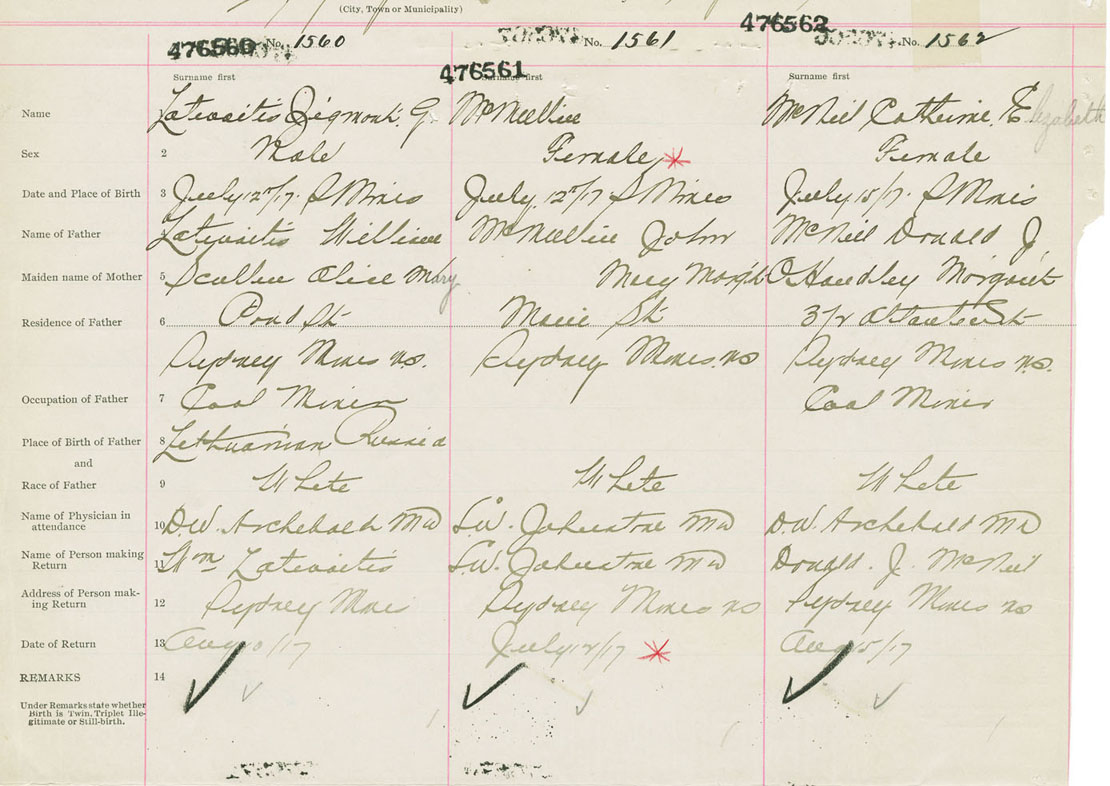 (City, Town or Municipality)
476560 No. 1560
476561 No. 1561
476562 No. 1562
Surname first Surname first Surname first
Name 1 Latwaitis Zigmont. G. McMellin McNeil Catherine. Elizabeth
Sex 2 Male Female Female
Date and Place of Birth 3 July 12/17. S Mines July 12/17 S Mines July 15/17. S Mines
Name of Father 4 Latwaitis William McMellin John McNeil Donald J.
Maiden name of Mother 5 Alice Mary Mary O Handley Margaret
Residence of Father 6 Pond St St 3/r
Sydney Mines N.S. Sydney Mines. N.S Sydney Mines N.S.
Occupation of Father 7 Coal Miner Coal Miner
Place of Birth of Father 8 Lethuanian Russia
and
Race of Father 9 White White White
Name of Physician in
attendance 10 D.W. Archebald MD S.W. Johnstone MD D.W. Archebald MD
Name of Person making
Return 11 Wm Latwaitis S.W. Johnstone MD Donald. J. McNeil
Address of Person mak-
ing Return 12 Sydney Mines Sydney Mines NS Sydney Mines NS
Date of Return 13 Aug 10/17 July 12/17 Aug 15/17
REMARKS 14
Under Remarks state whether
Birth is Twin, Triplet Ille-
gitimate or Still-birth.